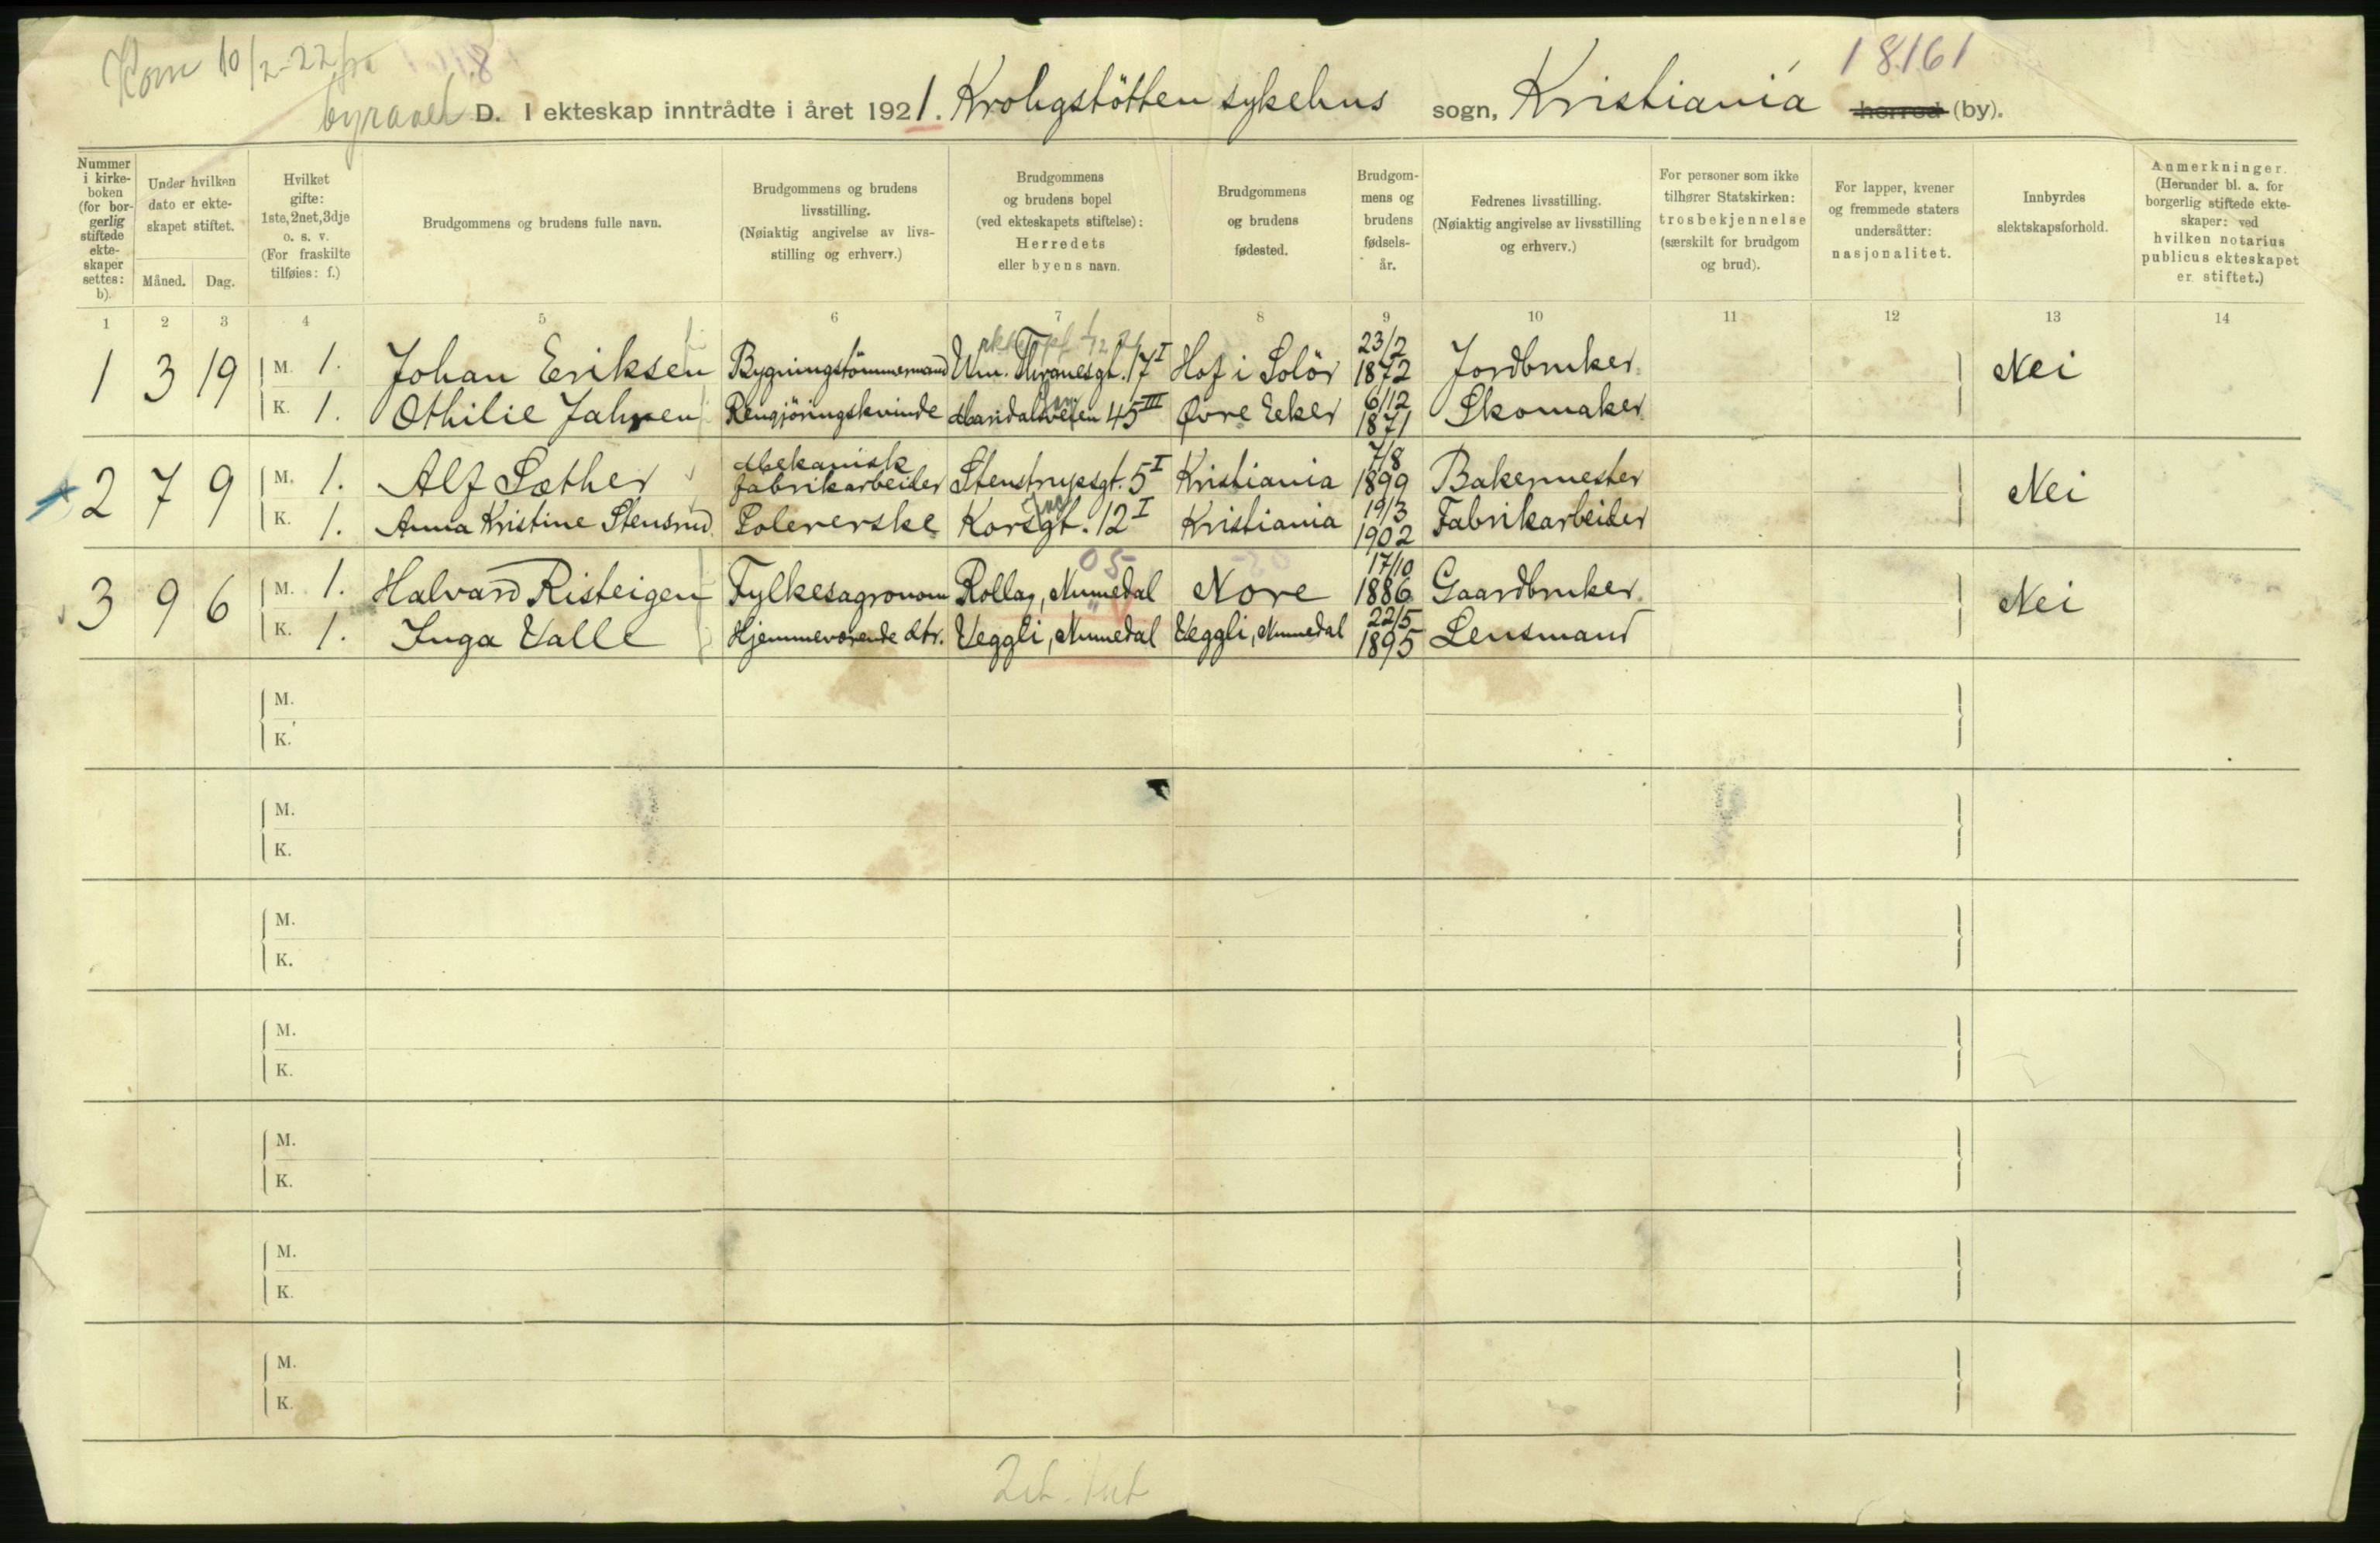 Kom 10/2-22 fra
18161
D. I ekteskap inntrådte i året 1921. Krohgstötten sykehus sogn, Kristiania herred (by).
Nummer i kirke- boken (for bor- gerlig stiftede ekte- skaper settes: b).
Under hvilken dato er ekte- skapet stiftet.
Måned. Dag.
Hvilket gifte: 1ste, 2net, 3dje o. s. v. (For fraskilte tilføies: f.)
Brudgommens og brudens fulle navn.
Brudgommens og brudens livsstilling. (Nøiaktig angivelse av livs- stilling og erhverv.)
Brudgommens og brudens bopel (ved ekteskapets stiftelse): Herredets eller byens navn.
Brudgommens og brudens fødested.
Brudgom- mens og brudens fødsels- år.
Fedrenes livsstilling. (Nøiaktig angivelse av livsstilling og erhverv.)
For personer som ikke tilhører Statskirken: trosbekjennelse (særskilt for brudgom og brud).
For lapper, kvener og fremmede staters undersåtter: nasjonalitet.
Innbyrdes slektskapsforhold.
Anmerkninger. (Herunder bl. a. for borgerlig stiftede ekte- skaper: ved hvilken notarius publicus ekteskapet er stiftet.)
1 2 3 4 5 6 7 8 9 10 11 12 13 14
1 3 19 M. 1. Johan Eriksen Bygningstömmermand Wm. Thranesgt. 17 I Hof i Solör 23/2 1872 Jordbruker Nei
K. 1. Othilie Jahren Rengjöringskvinde Maridalsveien 45 III Øvre Eeker 6/12 1871 Skomaker
2 7 9 M. 1. Alf Sæther Mekanisk fabrikarbeider Stenstrupsgt. 5 I Kristiania 7/8 1899 Bakermester Nei
K. 1. Anna Kristine Stensrud Polererske Korsgt. 12 I Kristiania 19/3 1902 Fabrikarbeider
05
3 9 6 M. 1. Halvard Risteigen Fylkesagronom Rollag, Numedal Nore 17/10 1886 Gaardbruker Nei
K. 1. Inga Valle Hjemmeværende dtr. Veggli, Numedal Veggli, Numedal 22/5 1895 Lensmand
M.
K.
M.
K.
M.
K.
M.
K.
M.
K.
M.
K.
M.
K.